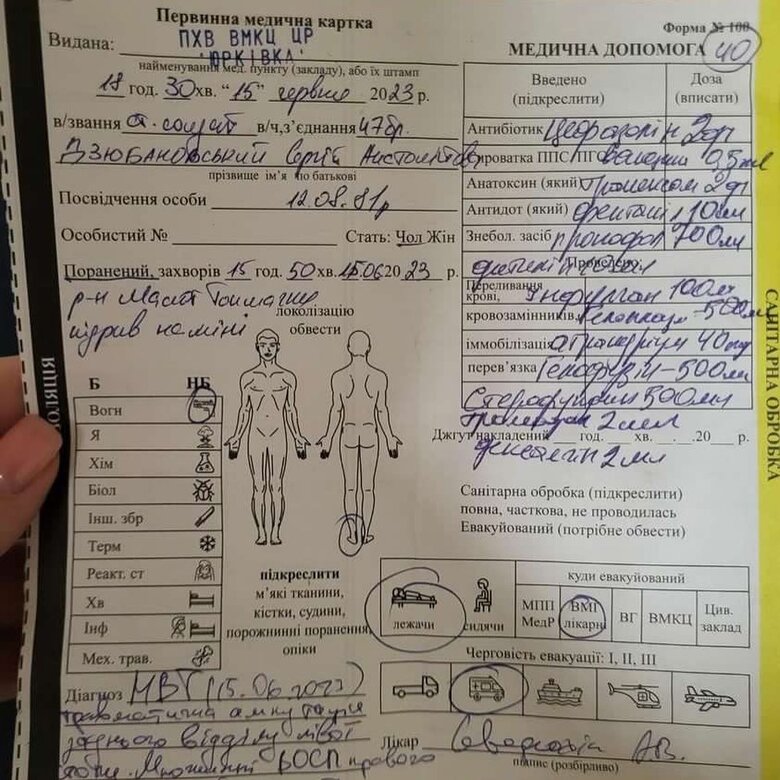 Первинна медична картка
Форма № 100
Видана: ПХВ ВМКЦ ЦР
"ЮРКІВКА"
найменування мед. пункту (закладу), або їх штамп
18 год. 30 хв. "15" червня 2023 р.
в/звання ст. солдат в/ч,з'єднання 47 бр.
Дзюбановський Сергій
прізвище ім'я по батькові
Посвідчення особи 12.08.81р
Особистий № Стать: Чол Жін
Поранений, захворів 15 год. 50 хв. 15.06 2023 р.
р-н Мала Токмачка
підрив на міні
локолізацію
обвести
Б НБ
Вогн
Я
Хім
Біол
Інш. збр
Терм
Реакт. ст
Хв
Інф
Мех. трав.
підкреслити
м'які тканини,
кістки, судини,
порожнинні поранення,
опіки
Діагноз МВТ (15.06.2023)
травматична ампутація
заднього відділу лівої
стопи. Множинні ВОСП правого
МЕДИЧНА ДОПОМОГА 40
Введено
(підкреслити)
Доза
(вписати)
Антибіотик 2гр
Сироватка ППС/ПГС 0,5 мл
Анатоксин (який) 2гр
Антидот (який) фентаніл 10мл
Знебол. засіб пропофол 700мл
Проведено:
Переливання
крові, Інфулган 100мл
кровозамінників, 500мл
іммобілізація 40
перев'язка 500мл
Стерофундин 500мл
2мл
Джгут накладений год. хв. . .20 р.
дексалгін 2мл
Санітарна обробка (підкреслити)
повна, часткова, не проводилась
Евакуйований (потрібне обвести)
лежачи
сидячи
куди евакуйований
МПП
МедР
ВМГ
лікарні
ВГ
ВМКЦ
Цив.
заклад
Черговість евакуації: І, ІІ, ІІІ
Лікар
підпис (розбірливо)
САНІТАРНА ОБРОБКА